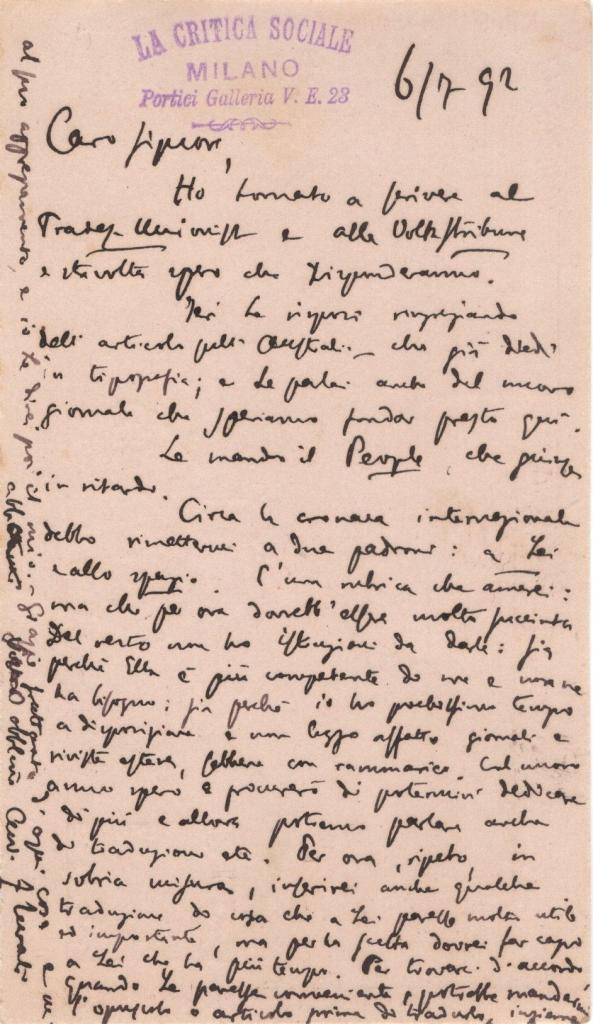 LA CRITICA SOCIALE
MILANO
Portici Galleria V. E. 23
6/7 92
Caro Signore,
Ho tornato a scrivere al
Trades-Unionist e alla Volkstribune
e stavolta spero che risponderanno.
Ieri Le risposi ringraziando
dell'articolo sugli che già diedi
in tipografia; e Le parlai anche del nuovo
giornale che speriamo fondar presto qui.
Le mando il People, che giunge
in ritardo.
Circa la cronaca internazionale
debbo rimettermi a due padroni: a Lei
e allo spazio. È una rubrica che amerei:
ma che per ora dovrebb'essere molto succinta
Del resto non ho istruzioni da darle: sia
perchè Ella è più competente di me e non ne
ha bisogno; sia perchè io ho pochissimo tempo
a disposizione e non leggo affatto giornali e
riviste estere, sebbene con rammarico. Col nuovo
anno spero e procurerò di potermivi dedicare
di più e allora potremo parlare anche
di traduzioni etc. Per ora, ripeto, in
sobria misura, inserirei anche qualche
traduzione di cosa che a Lei paresse molto utile
ed importante, ma per la scelta dovrei far capo
a Lei che ha più tempo. Per trovarci d'accordo
quando Le paresse conveniente, potrebbe mandarmi
l'opuscolo o articolo prima di tradurlo, insieme
al suo apprezzamento, e io Le direi poi il mio. Grazie frattanto d'ogni cosa e mi
abbia
F. Turati